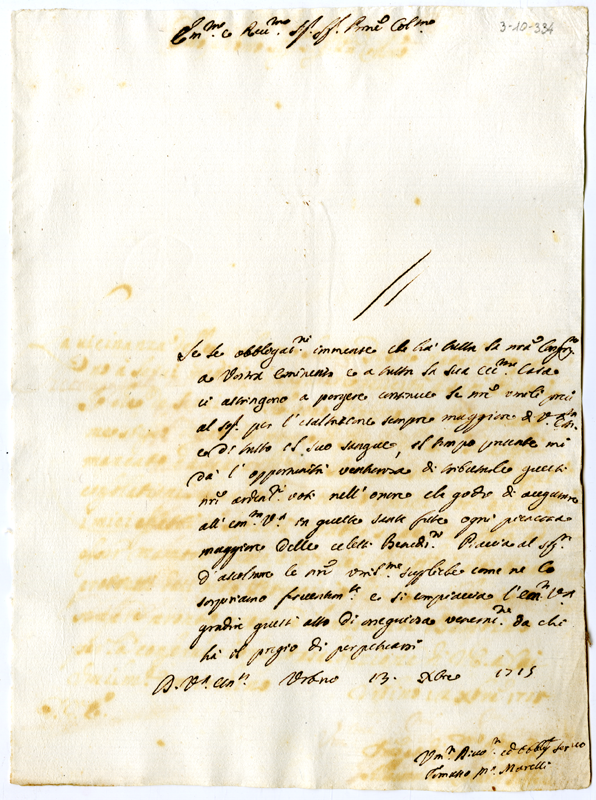 3-10-334
Em.mo e Rev.mo Sig. Sig. P.rone Col.mo
Se le obbligaz.ni immense che hà tutta la nra
a Vostra Eminenza e a tutta la sua Ecc.ma Casa
ci astringono a porgere continue le nre umili preci
al Sig. per l'esaltazione sempre maggiore di V.
e di tutto il suo sangue, il tempo presente mi
dà l' opportunità di tributarle questi
nri ardenti voti nell' onore che godo di augurare
all' Em.za V.ra in queste sante feste ogni pienezza
maggiore delle celesti Benediz.ni Piaccia al Sig.re
d'ascoltare le nre umil.me suppliche come ne lo
e si compiaccia l'Em.za V.ra
gradire questi atti di ossequiosa veneraz.ne da chi
hà il pregio di
D. V.a Em.za Urbino 13. Xbre 1715
Um.mo Divo.mo ed Obblig. Ser.
Tomaso M.a Marelli